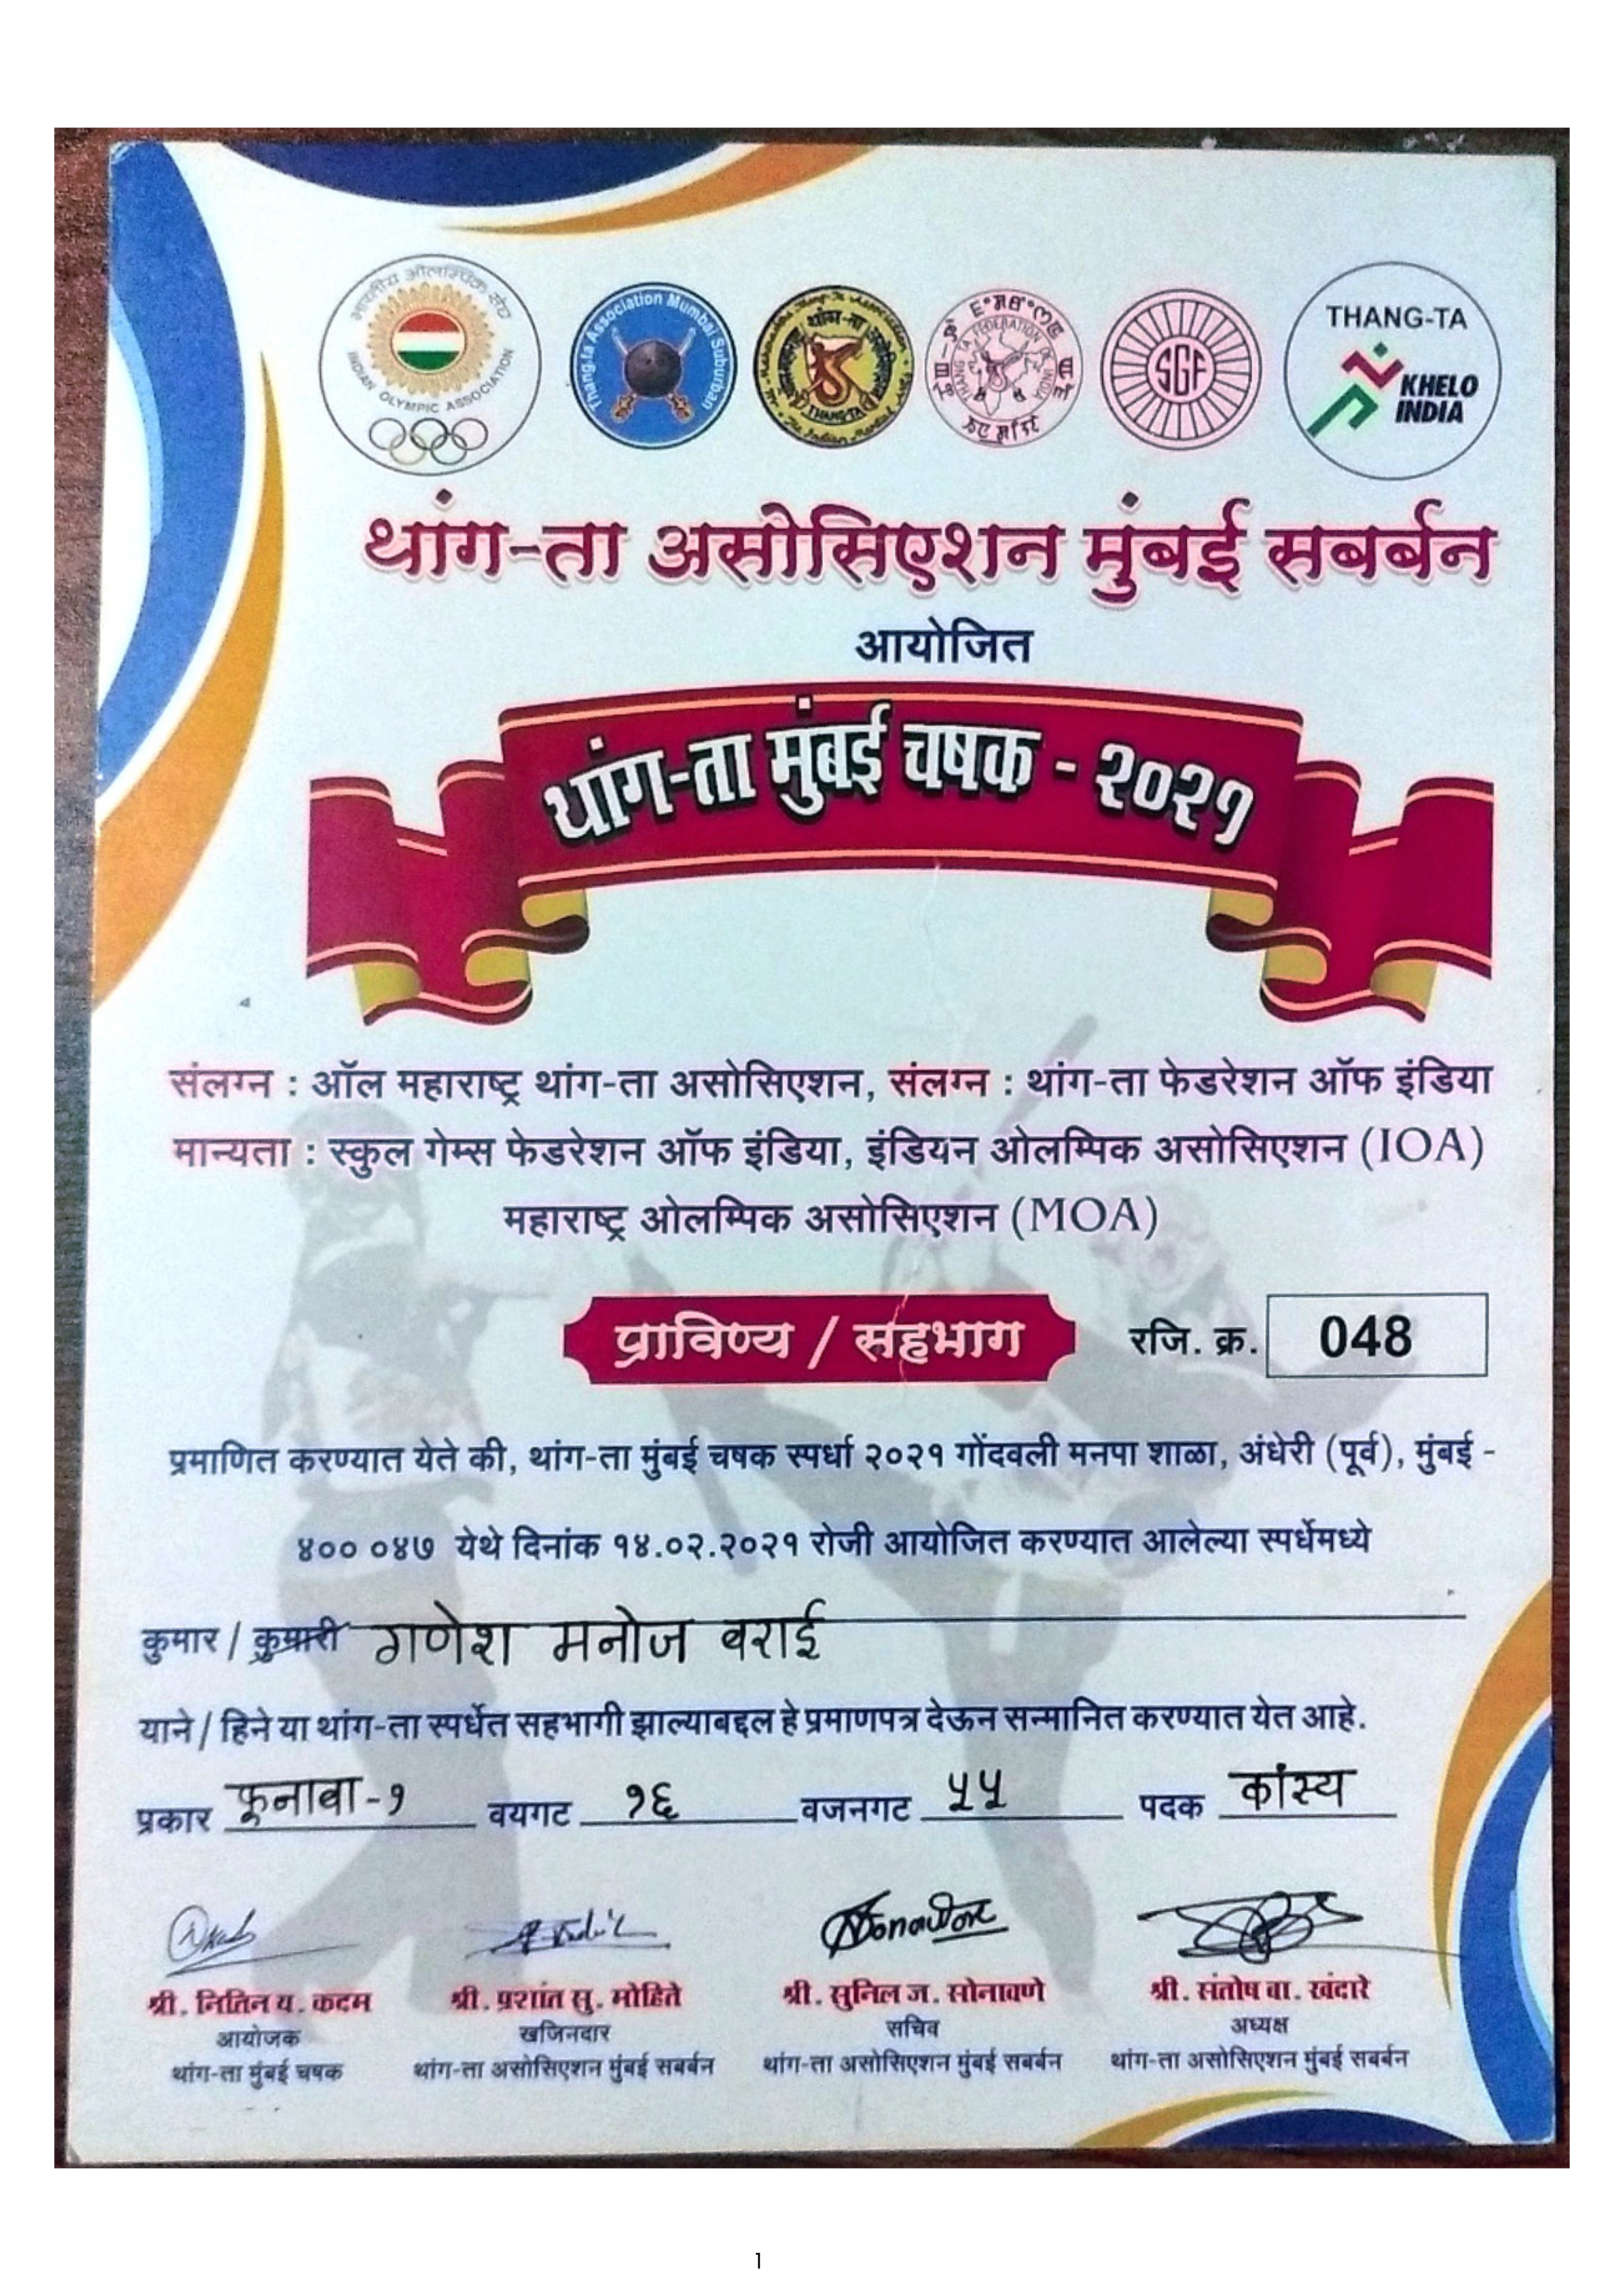 भारतीय ओलम्पिक संघ
INDIAN OLYMPIC ASSOCIATION
Thang.ta Association Mumbai Suburban
थांग-ता
THANG-TA
THANG TA FEDERATION OF INDIA
SGF
THANG-TA
KHELO
INDIA
थांग-ता असोसिएशन मुंबई सबर्बन
आयोजित
थांग-ता मुंबई चषक - २०२१
संलग्न : ऑल महाराष्ट्र थांग-ता असोसिएशन, संलग्न : थांग-ता फेडरेशन ऑफ इंडिया
मान्यता : स्कुल गेम्स फेडरेशन ऑफ इंडिया, इंडियन ओलम्पिक असोसिएशन (IOA)
महाराष्ट्र ओलम्पिक असोसिएशन (MOA)
प्राविण्य / सहभाग रजि. क्र. 048
प्रमाणित करण्यात येते की, थांग-ता मुंबई चषक स्पर्धा २०२१ गोंदवली मनपा शाळा, अंधेरी (पूर्व), मुंबई -
४०० ०४७ येथे दिनांक १४.०२.२०२१ रोजी आयोजित करण्यात आलेल्या स्पर्धेमध्ये
कुमार / कुमारी गणेश मनोज वराई
याने / हिने या थांग-ता स्पर्धेत सहभागी झाल्याबद्दल हे प्रमाणपत्र देऊन सन्मानित करण्यात येत आहे.
प्रकार फूनाबा-१ वयगट १६ वजनगट ५५ पदक कांस्य
श्री. नितिन य. कदम श्री. प्रशांत सु. मोहिते श्री. सुनिल ज. सोनावणे श्री. संतोष वा. खंदारे
आयोजक खजिनदार सचिव अध्यक्ष
थांग-ता मुंबई चषक थांग-ता असोसिएशन मुंबई सबर्बन थांग-ता असोसिएशन मुंबई सबर्बन थांग-ता असोसिएशन मुंबई सबर्बन
1